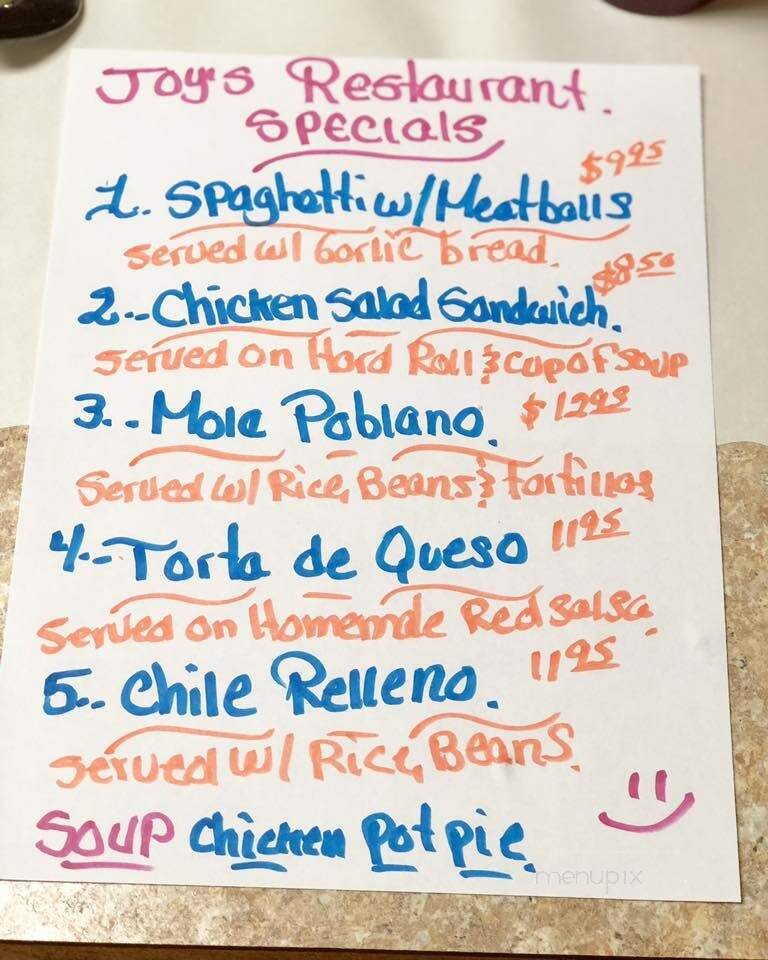 Joy's Restaurant.
SPECIALS
$9.95
1.. Spaghetti w/Meatballs
served w/ Garlic bread.
$8.50
2.-Chicken Salad Sandwich.
served on Hard Roll & cup of soup
3.. Mole Poblano. $12.95
Served w/ Rice, Beans & tortillas
4.-Torta de Queso 11.95
Served on Homemde Red salsa.
11.95
5.. Chile Relleno.
served w/ Rice, Beans.
SOUP Chicken Pot pie.
menupix